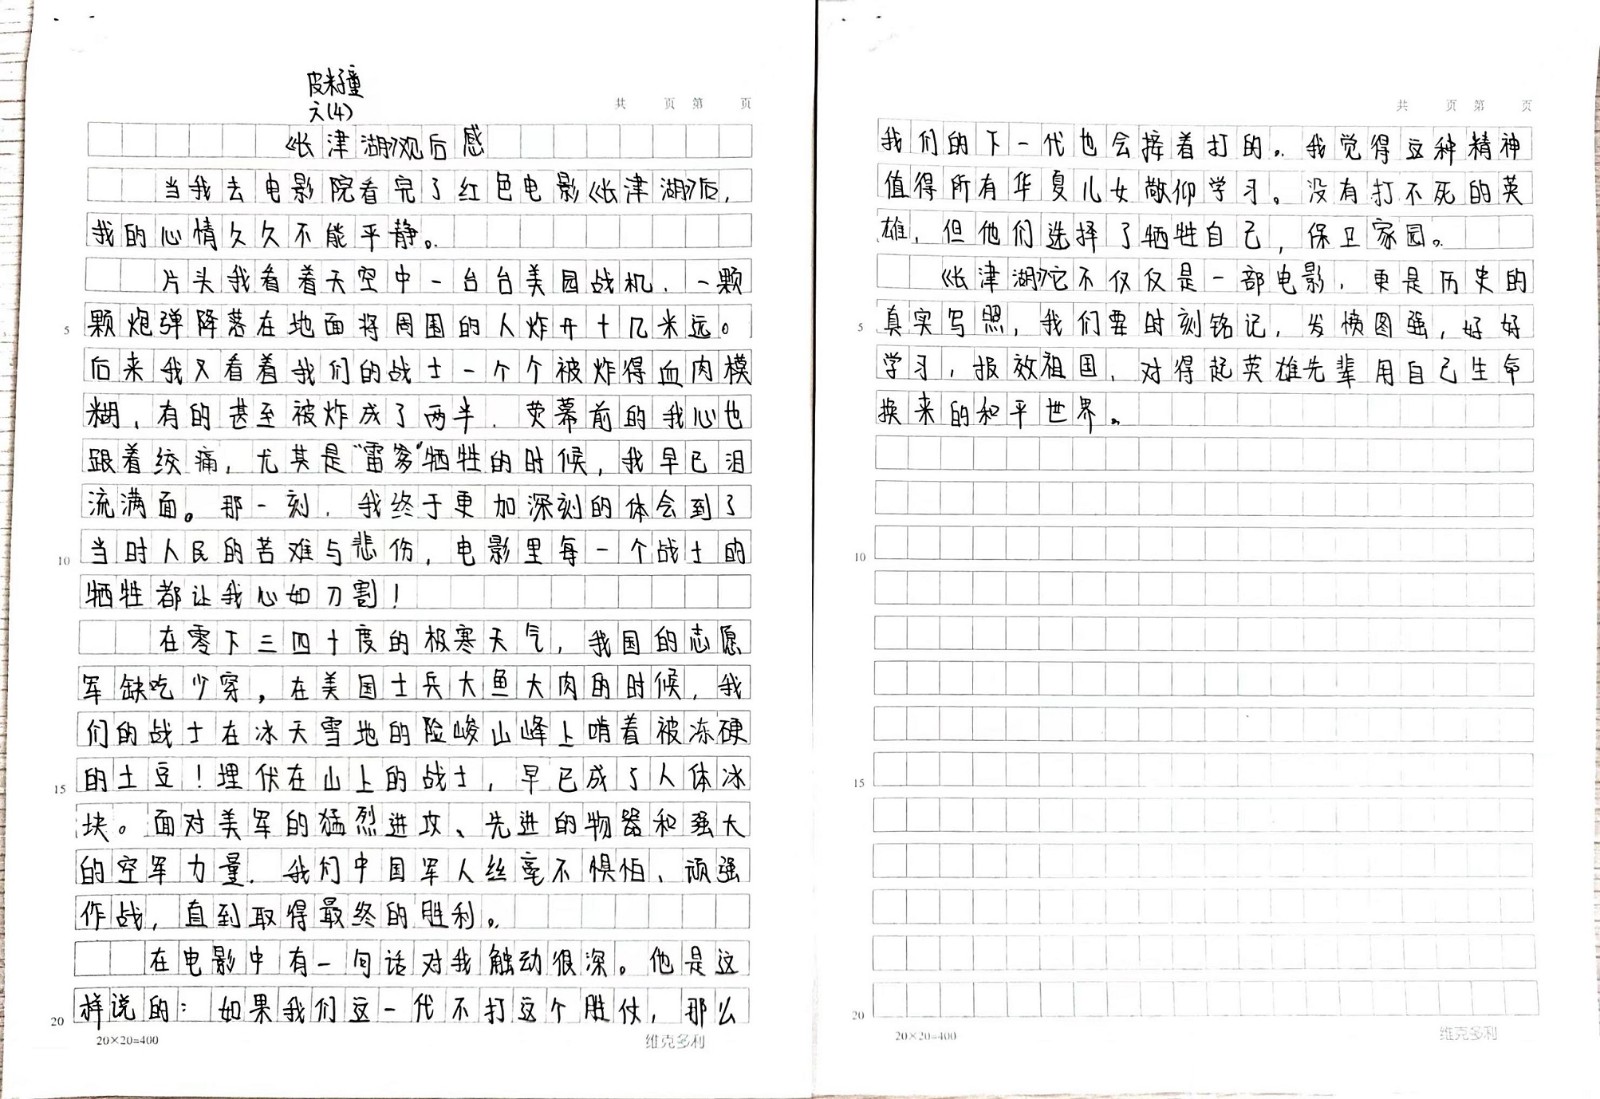 皮籽童
六(4)
共 页 第 页
《长津湖》观后感
当我去电影院看完了红色电影《长津湖》后，
我的心情久久不能平静。
片头我看着天空中一台台美国战机，一颗
颗炮弹降落在地面将周围的人炸开十几米远。
5
后来我又看着我们的战士一个个被炸得血肉模
糊，有的甚至被炸成了两半，荧幕前的我心也
跟着绞痛，尤其是“雷爹”牺牲的时候，我早已泪
流满面。那一刻，我终于更加深刻的体会到了
当时人民的苦难与悲伤，电影里每一个战士的
10
牺牲都让我心如刀割！
在零下三四十度的极寒天气，我国的志愿
军缺吃少穿，在美国士兵大鱼大肉的时候，我
们的战士在冰天雪地的险峻山峰上啃着被冻硬
的土豆！埋伏在山上的战士，早已成了人体冰
15
块。面对美军的猛烈进攻、先进的物器和强大
的空军力量，我们中国军人丝毫不惧怕，顽强
作战，直到取得最终的胜利。
在电影中有一句话对我触动很深。他是这
样说的：如果我们这一代不打这个胜仗，那么
20
20×20=400
维克多利
共 页 第 页
我们的下一代也会接着打的。我觉得这种精神
值得所有华夏儿女敬仰学习。没有打不死的英
雄，但他们选择了牺牲自己，保卫家园。
《长津湖》它不仅仅是一部电影，更是历史的
真实写照，我们要时刻铭记，发愤图强，好好
5
学习，报效祖国，对得起英雄先辈用自己生命
换来的和平世界。
10
15
20
20×20=400
维克多利